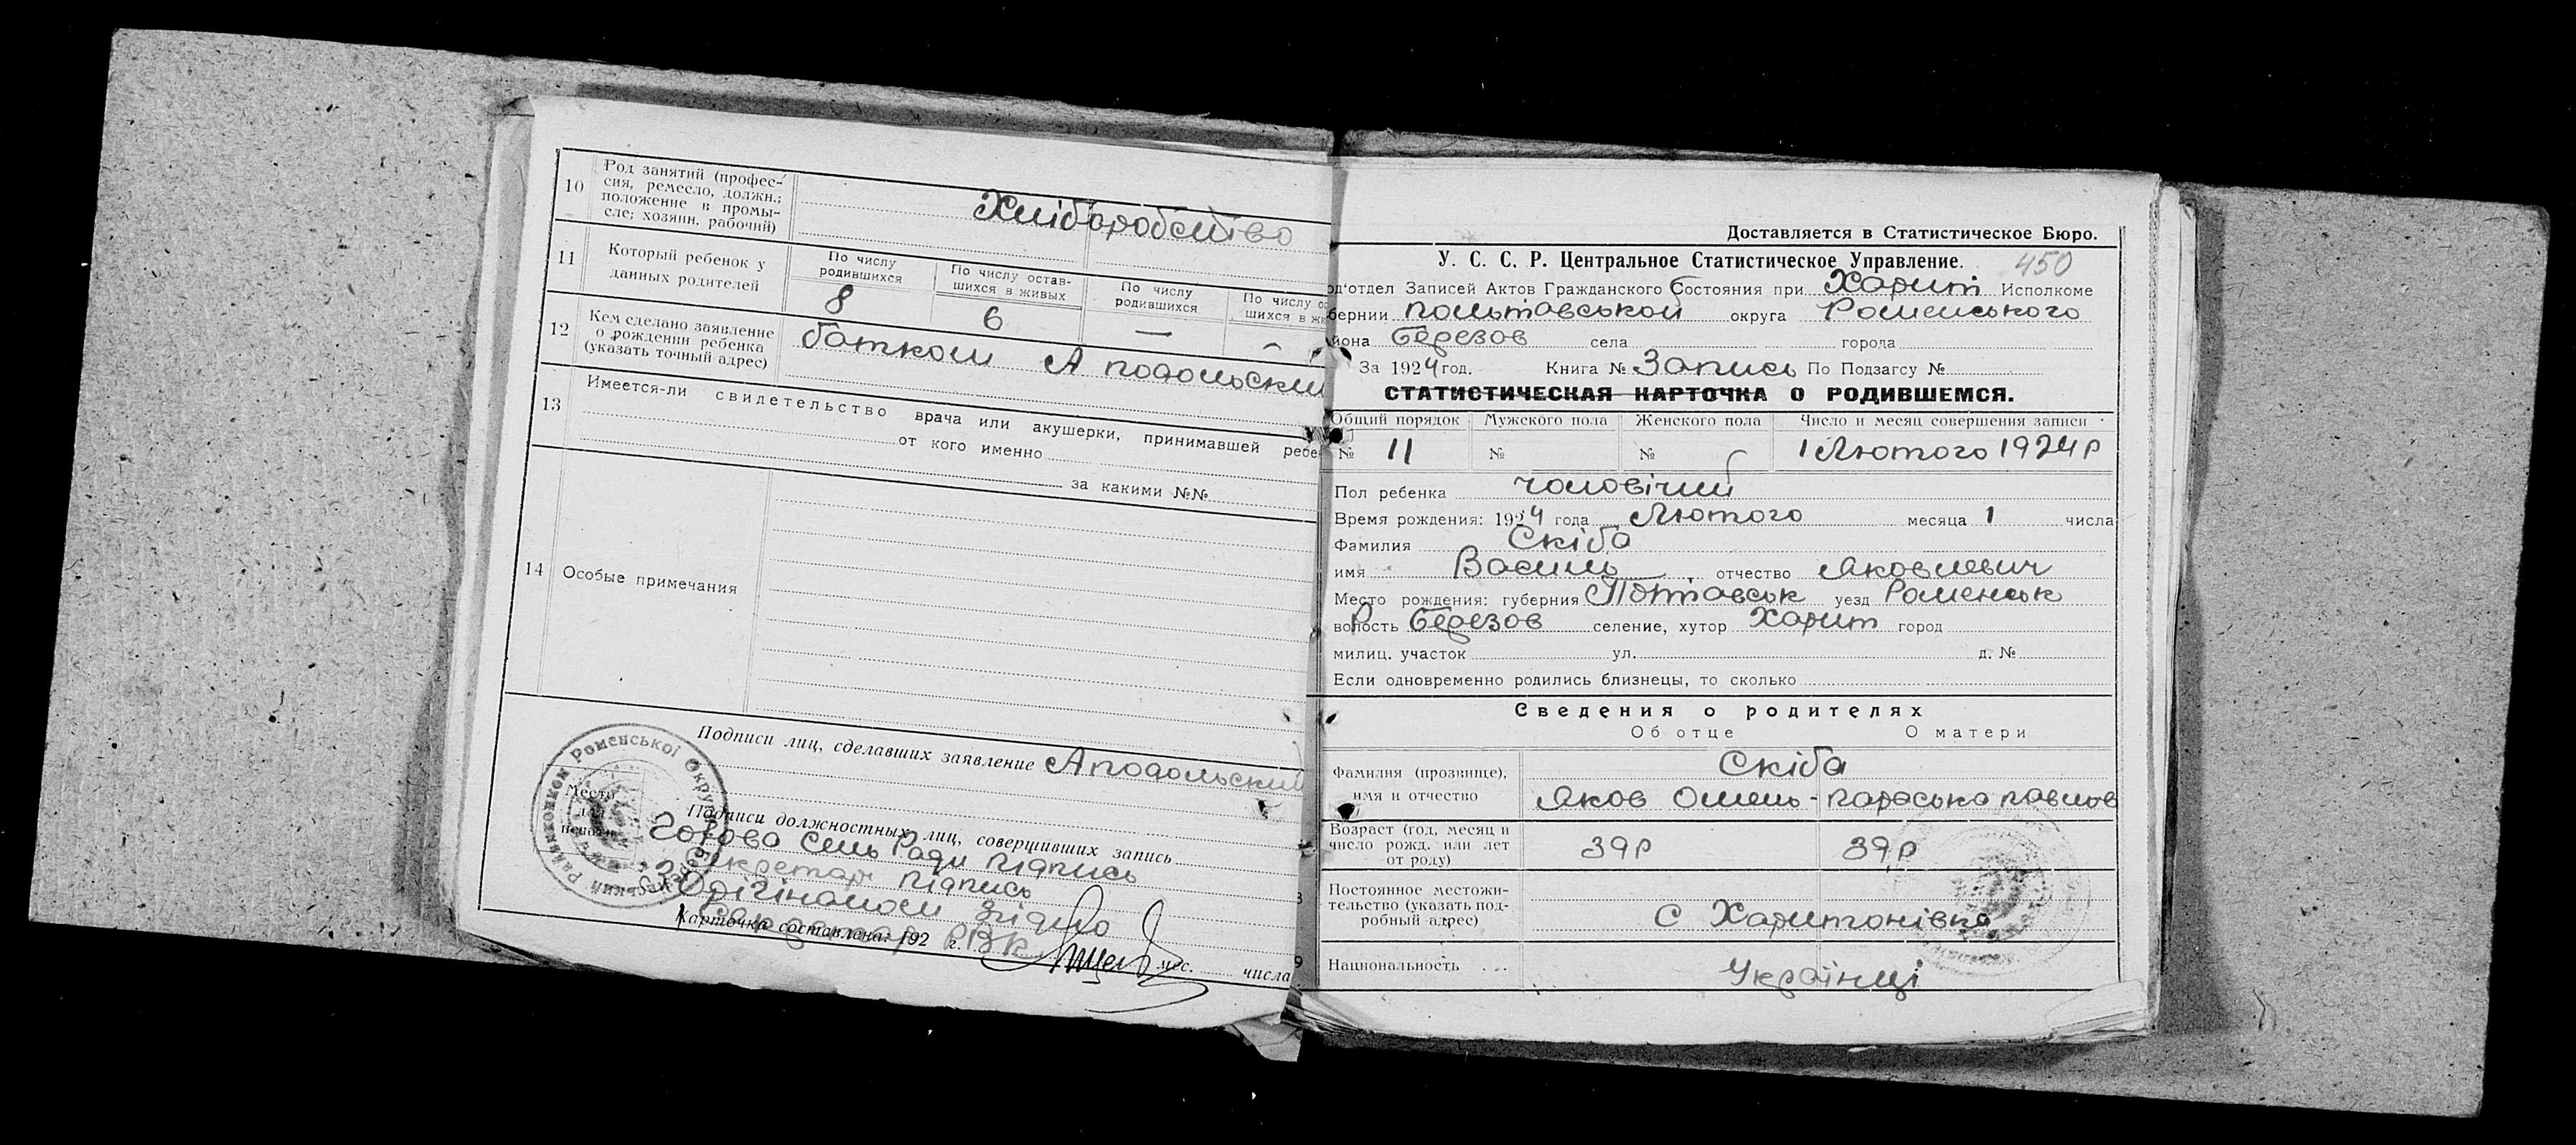 10 Род занятий (профес-
сия, ремесло, должн.;
положение в промы-
сле; хозяин, рабочий)
Хліборобство
11 Который ребенок у
данных родителей
По числу
родившихся
По числу остав-
шихся в живых
По числу
родившихся
По числу ос
шихся в жи
8 6 — –
12 Кем сделано заявление
о рождении ребенка
(указать точный адрес)
батком А подольский
13 Имеется-ли свидетельство врача или акушерки, принимавшей ребе
от кого именно
за какими №№
14 Особые примечания
Подписи лиц, сделавших заявление Аподольский
Место
для
печати
Подписи должностных лиц, совершивших запись
Голова Сель Ради підпись
Секретар підпись
З Орігіналом Згідно
Карточка составлена: 192 г. мес. числа
Секретар РВК
Доставляется в Статистическое Бюро.
У. С. С. Р. Центральное Статистическое Управление. 450
од'отдел Записей Актов Гражданского Состояния при Харит Исполкоме
бернии полтавськой округа Роменського
йона Березов села города
За 1924 год. Книга № Запись По Подзагсу №
СТАТИСТИЧЕСКАЯ КАРТОЧКА О РОДИВШЕМСЯ.
Общий порядок Мужского пола Женского пола Число и месяц совершения записи
№ 11 № № 1 Лютого 1924 р
Пол ребенка чоловічий
Время рождения: 1924 года Лютого месяца 1 числа
Фамилия Скіба
имя Василь отчество Яковлевич
Место рождения: губерния Полтавськ уезд Роменськ
волость Р Березов селение, хутор Харит город
милиц. участок ул. д. №
Если одновременно родились близнецы, то сколько
Сведения о родителях
Об отце О матери
Фамилия (прозвище),
имя и отчество
Скіба
Яков Омель- Параська павлов
Возраст (год, месяц и
число рожд. или лет
от роду)
39р 39р
Постоянное местожи-
тельство (указать под-
робный адрес)
С Харитонівка
Национальность . . .
Українці